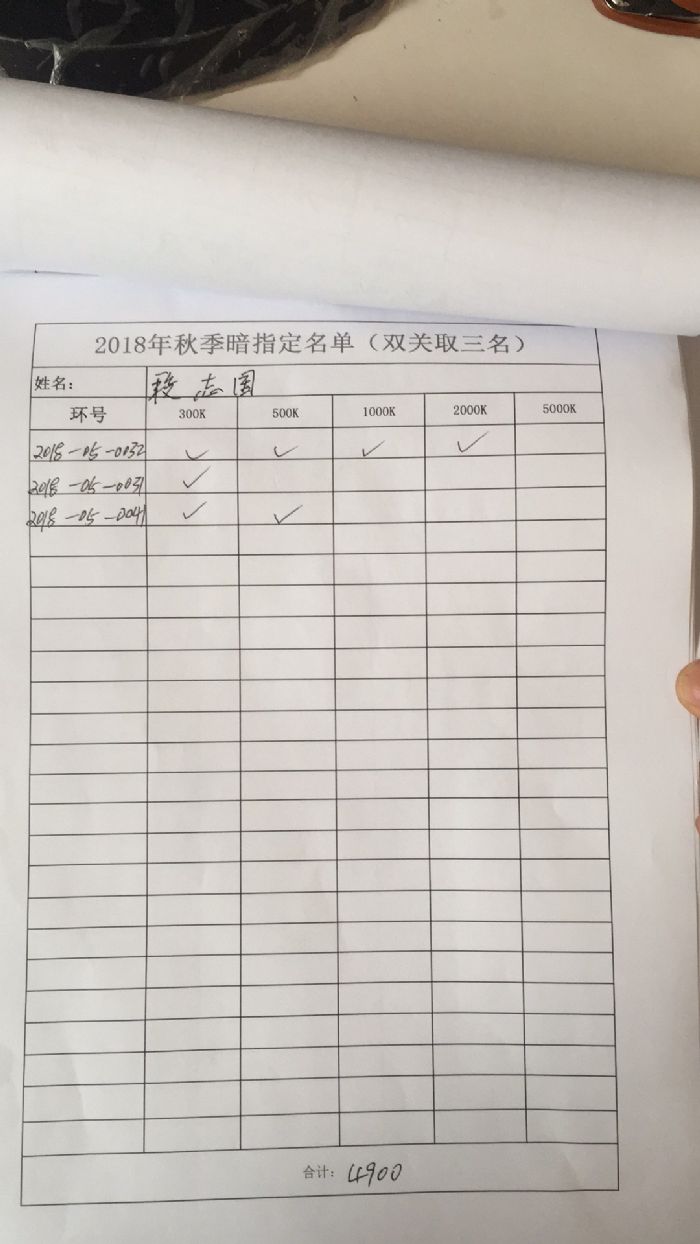 2018年秋季暗指定名单（双关取三名）
姓名： 段志国
环号 300K 500K 1000K 2000K 5000K
2018-05-0032 ✓ ✓ ✓ ✓
2018-05-0031 ✓
2018-05-0041 ✓ ✓
合计： 4900